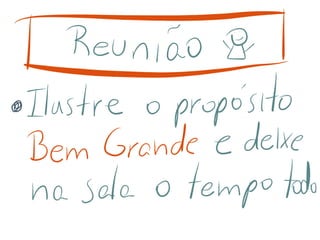 Reunião
Ilustre o propósito
Bem Grande e deixe
na sala o tempo todo